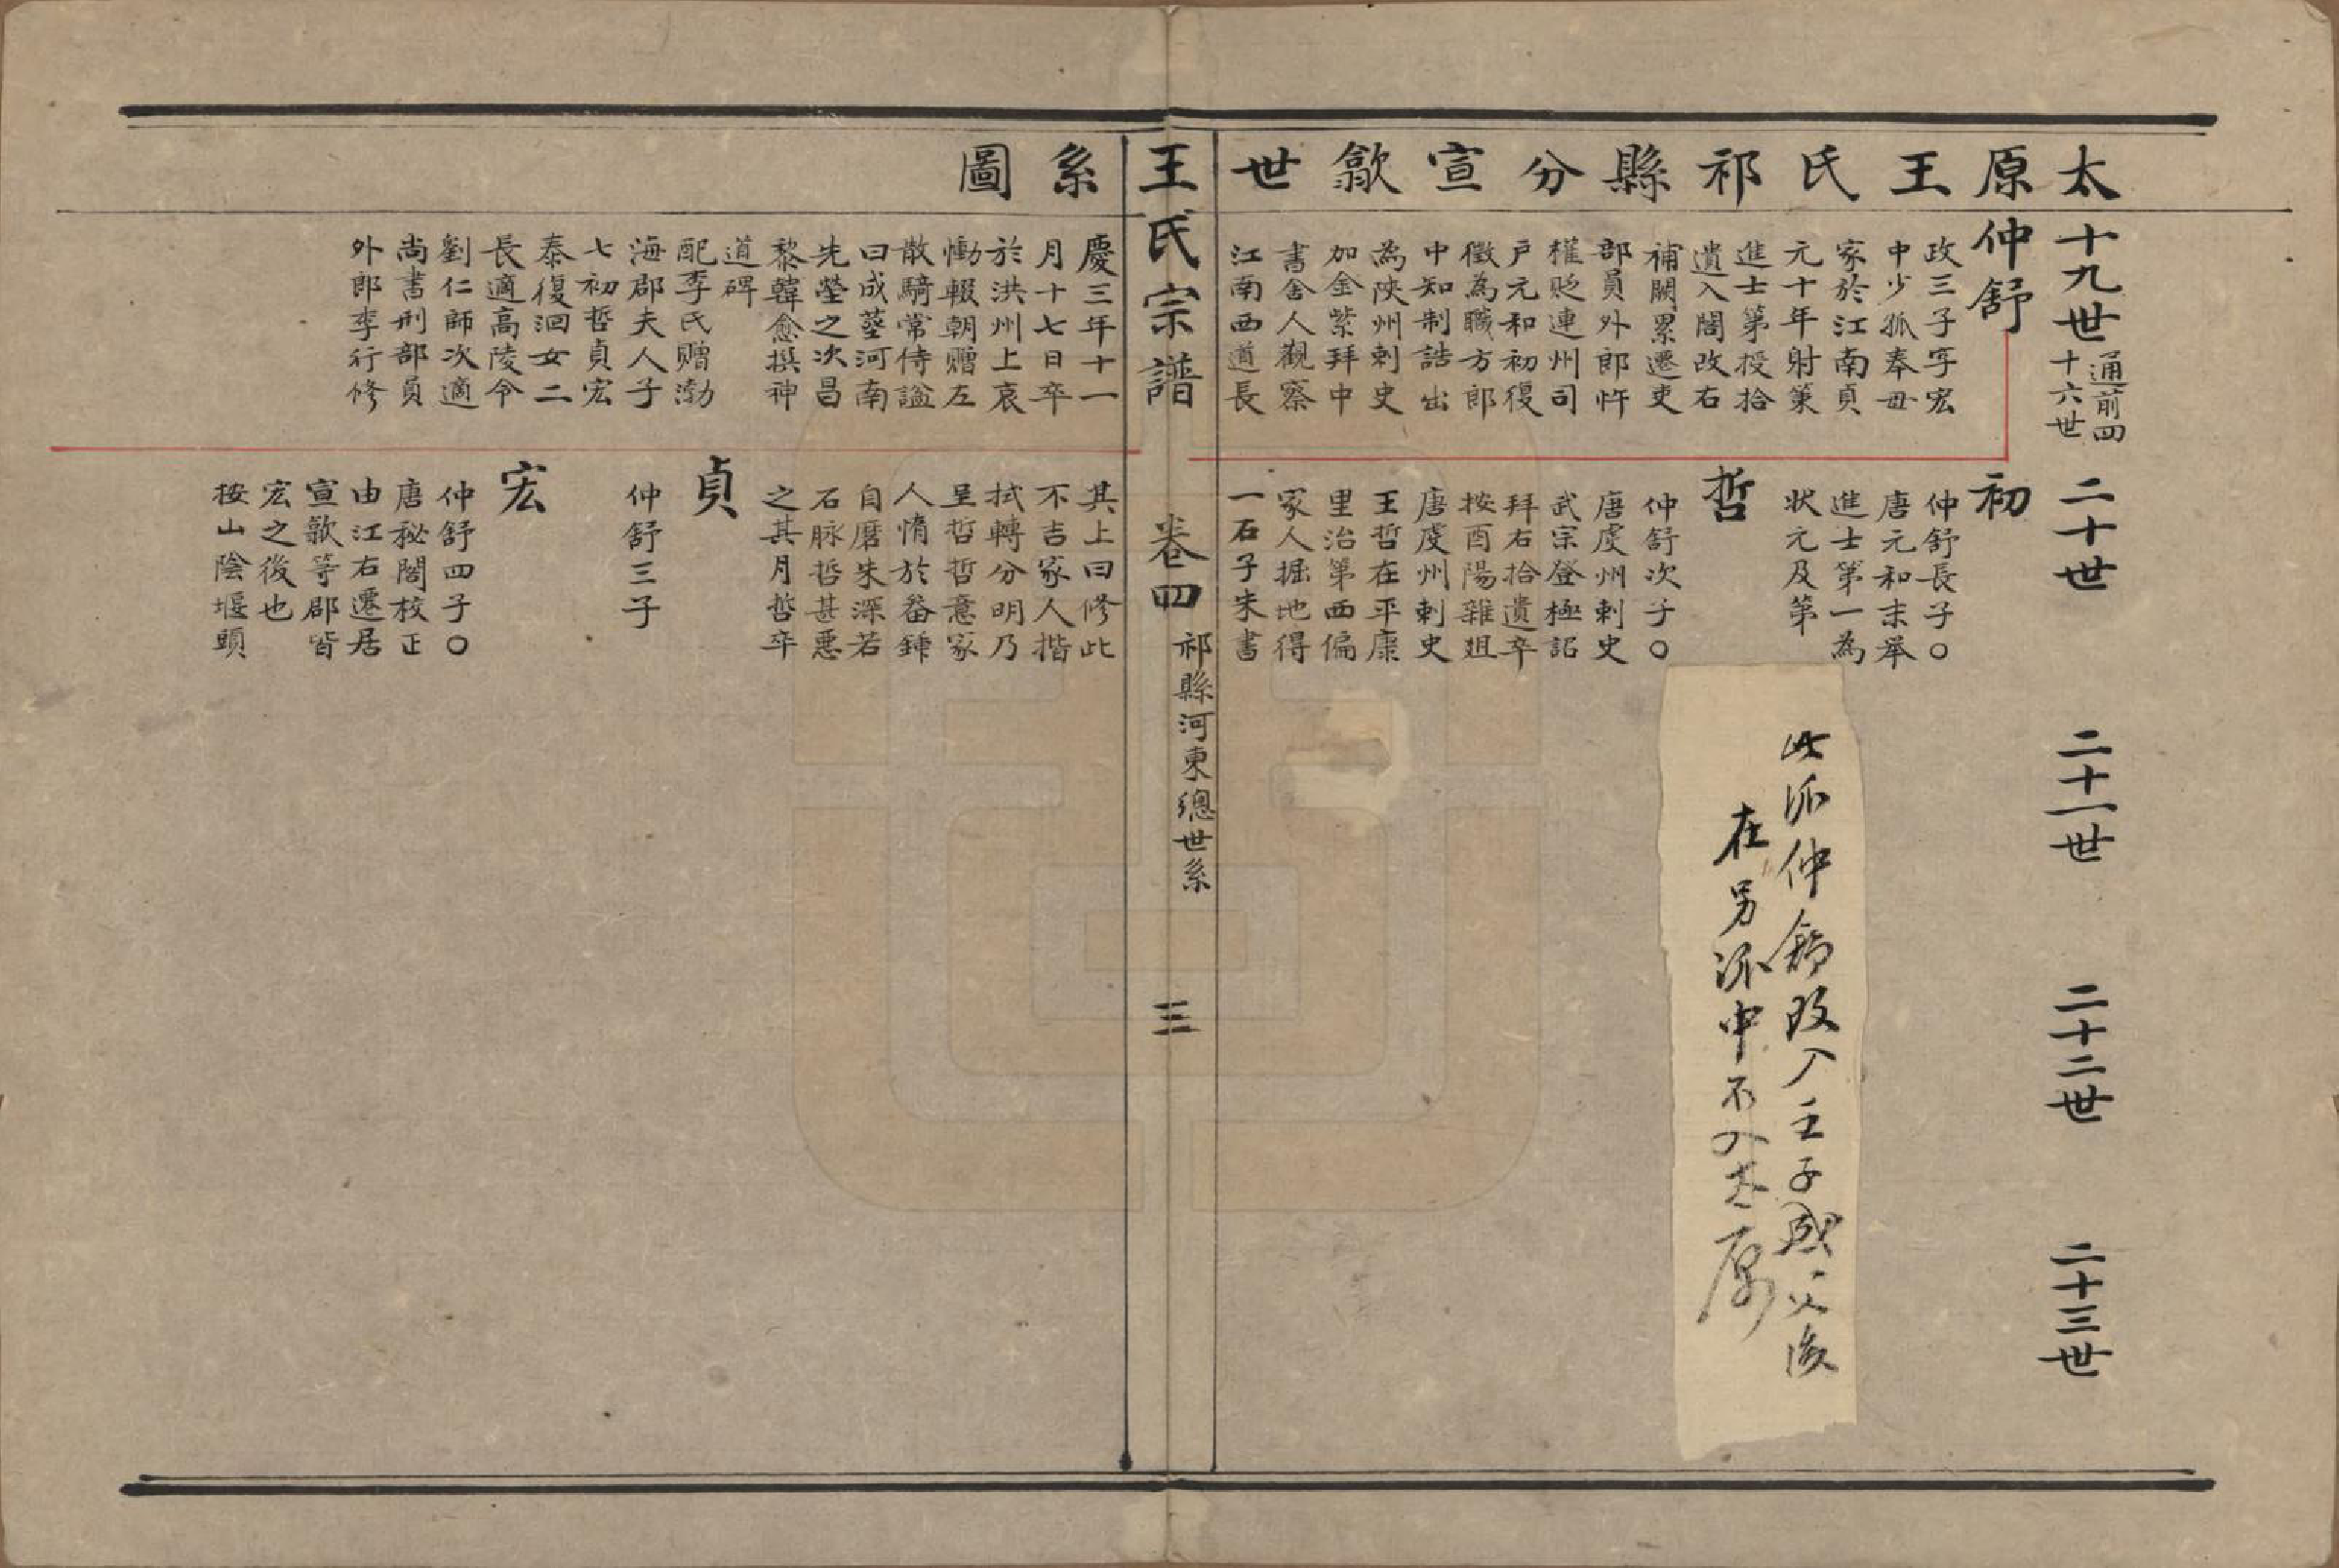 太原王氏祁縣分宣歙世系圖
十九世
通前四
十六世
二十世
二十一世
二十二世
二十三世
仲舒
政三子字宏
中少孤奉母
家於江南貞
元十年射策
進士第授拾
遺入閣改右
補闕累遷吏
部員外郎忤
權貶連州司
戶元和初復
徵為職方郎
中知制誥出
為陝州刺史
加金紫拜中
書舍人觀察
江南西道長
慶三年十一
月十七日卒
於洪州上哀
慟輟朝贈左
散騎常侍諡
曰成塟河南
先塋之次昌
黎韓愈撰神
道碑
配李氏贈渤
海郡夫人子
七初哲貞宏
泰復洄女二
長適高陵令
劉仁師次適
尚書刑部員
外郎李行修
初
仲舒長子○
唐元和末舉
進士第一為
狀元及第
哲
仲舒次子○
唐虔州刺史
武宗登極詔
拜右拾遺卒
按酉陽雜俎
唐虔州刺史
王哲在平康
里治第西偏
家人掘地得
一石子朱書
其上曰修此
不吉家人揩
拭轉分明乃
呈哲哲意家
人惰於畚鍤
自磨朱深若
石脉哲甚惡
之其月哲卒
貞
仲舒三子
宏
仲舒四子○
唐秘閣校正
由江右遷居
宣歙等郡皆
宏之後也
按山陰堰頭
王氏宗譜
卷四
祁縣河東總世系
三
此派仲舒改入王子威公後
在另派中不入太原